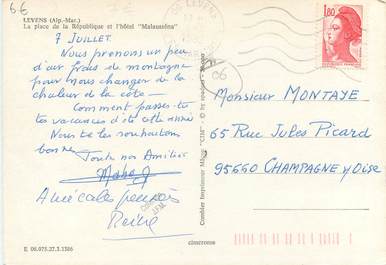 6€
LEVENS (Alp.-Mar.)
La place de la République et l'hôtel "Malausséna"
7 JUILLET.
Nous prenons un peu
d'air frais de montagne
pour nous changer de la
chaleur de la côte —
Comment passes-tu
tes vacances d'été cette année
Nous te les souhaitons
bonnes
Toute nos Amitiés
Amicales pensées
Combier Imprimeur Mâcon "CIM"
LEVENS
06
1,80
Monsieur MONTAYE
65 RUE JULES PICARD
95660 CHAMPAGNE s/Oise
E 06.075.27.3.1306
cimcrome